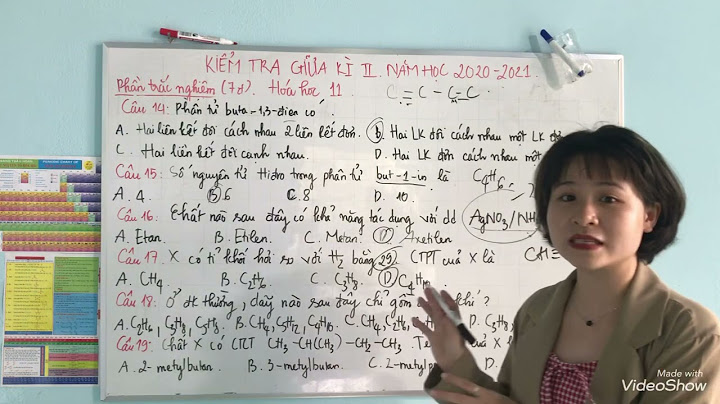 KIỂM TRA GIỮA KÌ II. NĂM HỌC 2020-2021.
Phần trắc nghiệm (7đ). Hóa học 11
C = C - C = C
Câu 14: Phân tử buta-1,3-đien có
A. Hai liên kết đôi cách nhau 2 liên kết đơn. B. Hai LK đôi cách nhau một LK
C. Hai liên kết đôi cạnh nhau. D. Hai LK đơn cách nhau một
Câu 15: Số nguyên tử Hiđro trong phân tử but-1-in là C4H6
A. 4. B. 6 C. 8 D. 10.
Câu 16: Chất nào sau đây có khả năng tác dụng với dd AgNO3/NH
A. Etan. B. Etilen. C. Metan. D. Axetilen
Câu 17: X có tỉ khối hơi so với H2 bằng 29. CTPT của X là CH≡
A. CH4. B. C2H6. C. C3H8. D. C4H10
Câu 18: Ở đk thường, dãy nào sau đây chỉ gồm khí?
A. C2H6, C3H8, C5H8. B. CH4, C5H12, C4H10. C. CH4, C2H6, D. C3H8,
Câu 19: Chất X có CTCT CH3-CH(CH3)-CH2-CH3. của X
A. 2-metylbutan. B. 3-metylbutan. C. 2-metylp D.
Made with
VideoShow